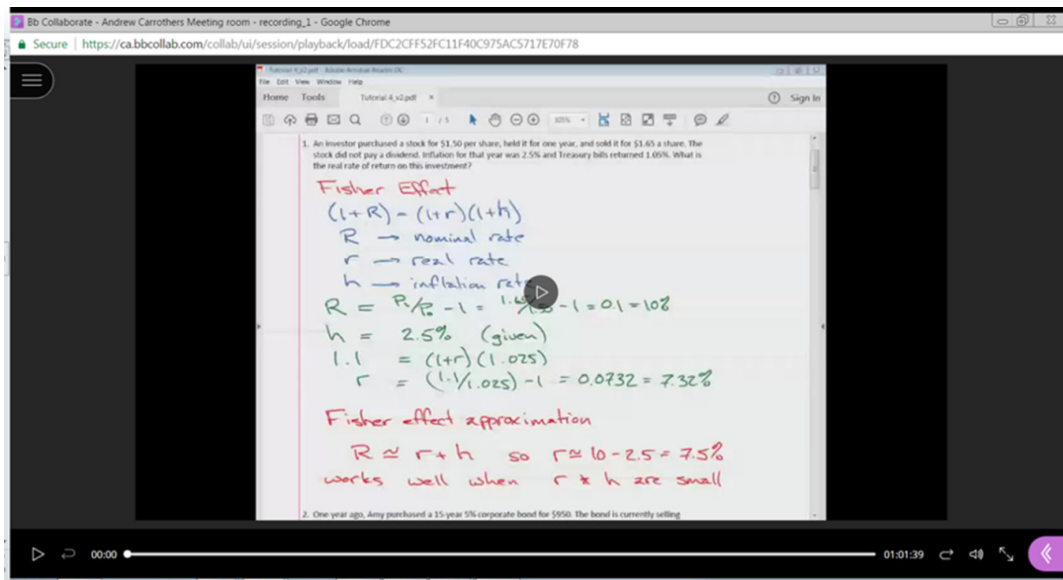 Bb Collaborate - Andrew Carrothers Meeting room - recording_1 - Google Chrome
Secure | https://ca.bbcollab.com/collab/ui/session/playback/load/FDC2CFF52FC11F40C975AC5717E70F78
Tutorial 4_v2.pdf - Adobe Acrobat Reader DC
File Edit View Window Help
Home Tools Tutorial 4_v2.pdf × Sign In
1 / 5 105%
1. An investor purchased a stock for $1.50 per share, held it for one year, and sold it for $1.65 a share. The
stock did not pay a dividend. Inflation for that year was 2.5% and Treasury bills returned 1.05%. What is
the real rate of return on this investment?
Fisher Effect
(1+R) = (1+r)(1+h)
R → nominal rate
r → real rate
h → inflation rate
R = P₁/P₀ - 1 = 1.65/1.50 - 1 = 0.1 = 10%
h = 2.5% (given)
1.1 = (1+r)(1.025)
r = (1.1/1.025) - 1 = 0.0732 = 7.32%
Fisher effect approximation
R ≅ r + h so r ≅ 10 - 2.5 = 7.5%
works well when r & h are small
2. One year ago, Amy purchased a 15-year 5% corporate bond for $950. The bond is currently selling
00:00 01:01:39